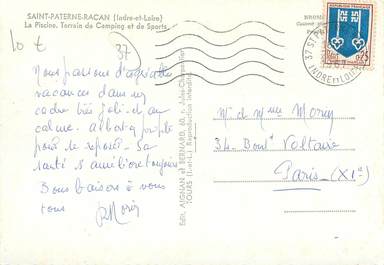 SAINT-PATERNE-RACAN (Indre-et-Loire)
La Piscine, Terrain de Camping et de Sports
10 €
37
Nous passons d'agréables
vacances dans un
cadre très joli et au
calme.
pour se reposer. Sa
santé s'améliore toujours
Bons baisers à vous
tous
Edit. AIGNAN et BERNARD, 60, r. Jules-Charpentier
TOURS (I.-&-L.) Reproduction interdite
37 ST P
INDRE ET LOIRE
REPUBLIQUE FRANÇAISE
0,25
M. et Mme
34 Boult Voltaire
Paris (XIe)